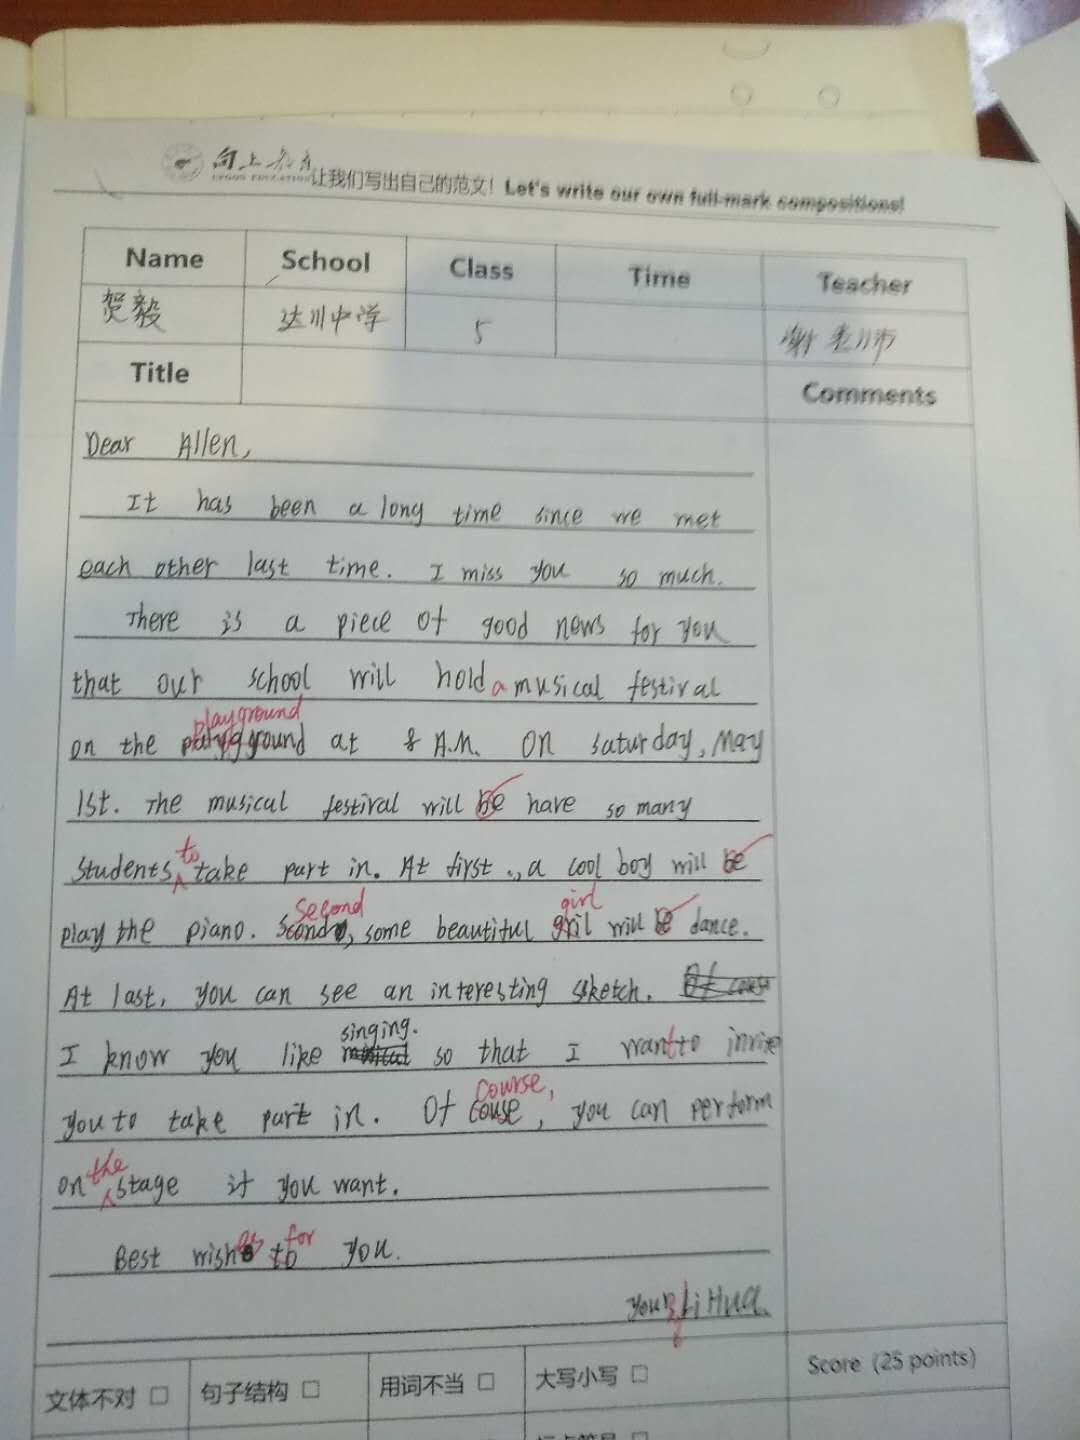 向上教育
UPGOO EDUCATION
让我们写出自己的范文! Let's write our own full-mark compositions!
Name School Class Time Teacher
贺毅 达川中学 5 谢老师
Title Comments
Dear Allen,
It has been a long time since we met
each other last time. I miss you so much.
There is a piece of good news for you
that our school will hold a musical festival
playground
on the palyground at 8 A.M. on saturday, May
1st. The musical festival will be have so many
to
students take part in. At first, a cool boy will be
second girl
play the piano. Scond, some beautiful gril will be dance.
At last, you can see an interesting sketch.
singing.
I know you like so that I want to invite
course,
you to take part in. Of couse, you can perform
the
on stage if you want.
es for
Best wish to you.
yours, Li Hua.
文体不对 □ 句子结构 □ 用词不当 □ 大写小写 □ Score (25 points)